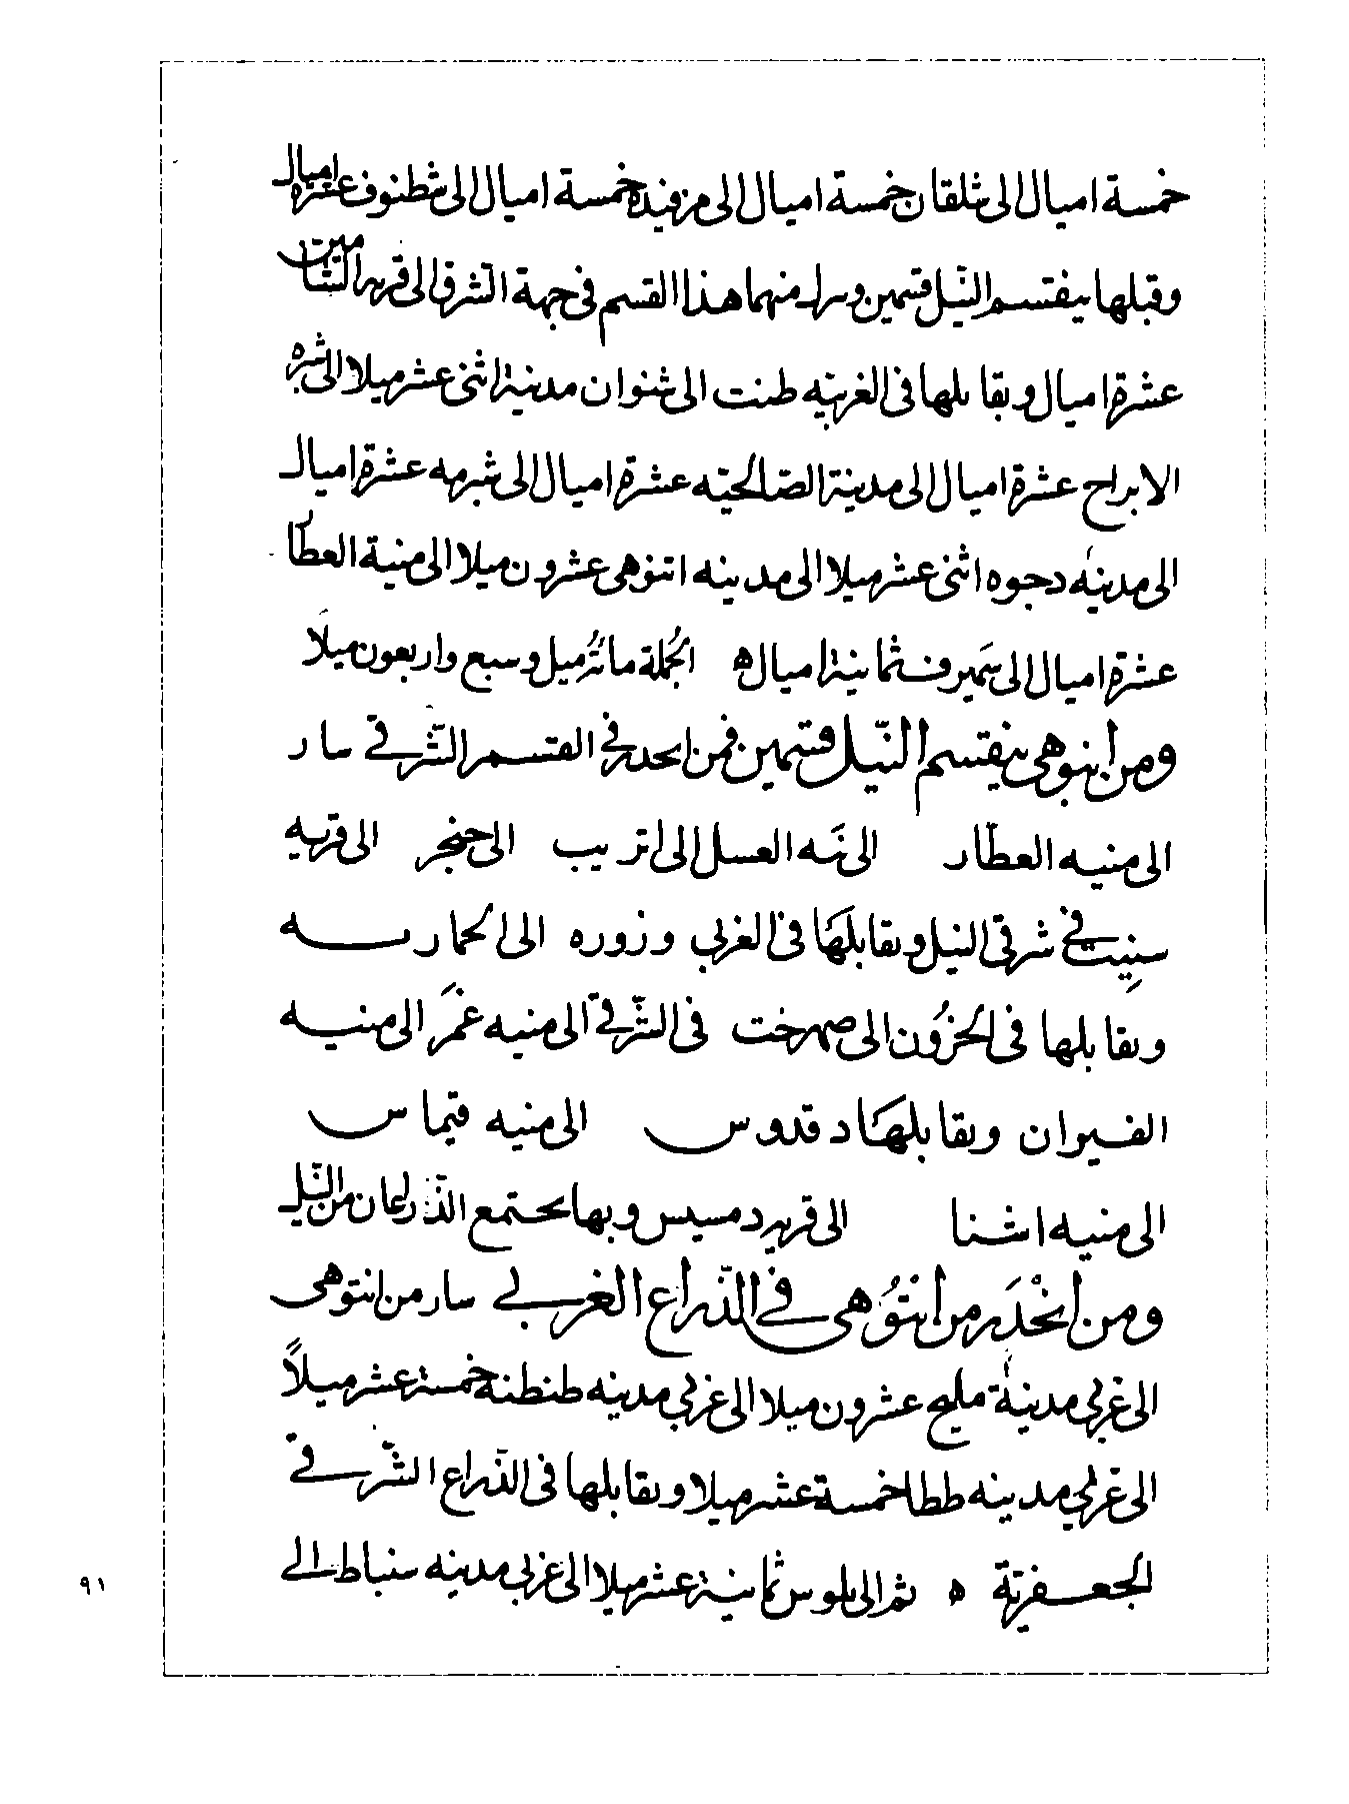 خمسة اميال الى شلقان خمسة اميال الى مزفيده خمسة اميال الى شطنوف عشرة اميال
وقبلها ينقسم النيل قسمين ويترك منهما هذا القسم في جهة الشرق الى قرية الشاميين
عشرة اميال ويقابلها في الغربية طنت الى شنوان مدينة اثنى عشر ميلا الى شبره
الابراح عشرة اميال الى مدينة الصالحيه عشرة اميال الى شبرمه عشرة اميال
الى مدينة دجوه اثنى عشر ميلا الى مدينه انتوهى عشرون ميلا الى منية العطار
عشرة اميال الى سمير ثمانية اميال ه الجملة مائة ميل وسبع واربعون ميلا
ومن انتوهى ينقسم النيل قسمين فمن انحدر في القسم الشرقي سار
الى منيه العطار الى نه العسل الى اتريب الى جنجر الى قريه
سنيت في شرقي النيل ويقابلها في الغربي وزوره الى الحمارسه
ويقابلها في الحزون الى صهرخت في الشرقي الى منيه غمر الى منيه
الفيران ويقابلها دقدوس الى منيه فيماس
الى منيه اشنا الى قرية دمسيس وبها يجتمع الذراعان من النيل
ومن انحدر من انتوهى في الذراع الغربي سار من انتوهى
الى غربي مدينة مليج عشرون ميلا الى غربي مدينه طنطنه خمسة عشر ميلاً
الى غربي مدينه ططا خمسة عشر ميلا ويقابلها في الذراع الشرقي
الجعفرية ه ثم الى بلوس ثمانية عشر ميلا الى غربي مدينه سنباط الى
٩١